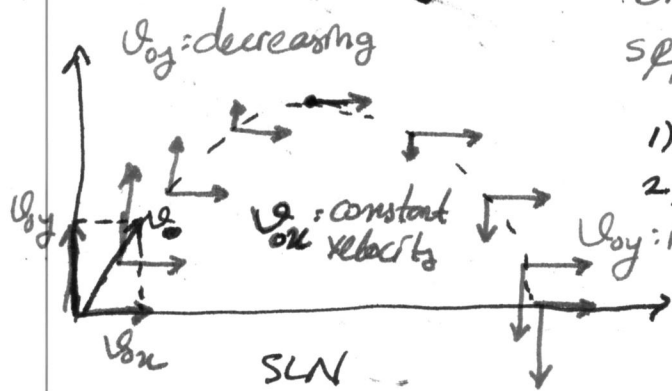 v₀y: decreasing
1)
2
v₀y
v₀
v₀x : constant
velocity
v₀y:
v₀x
SLN